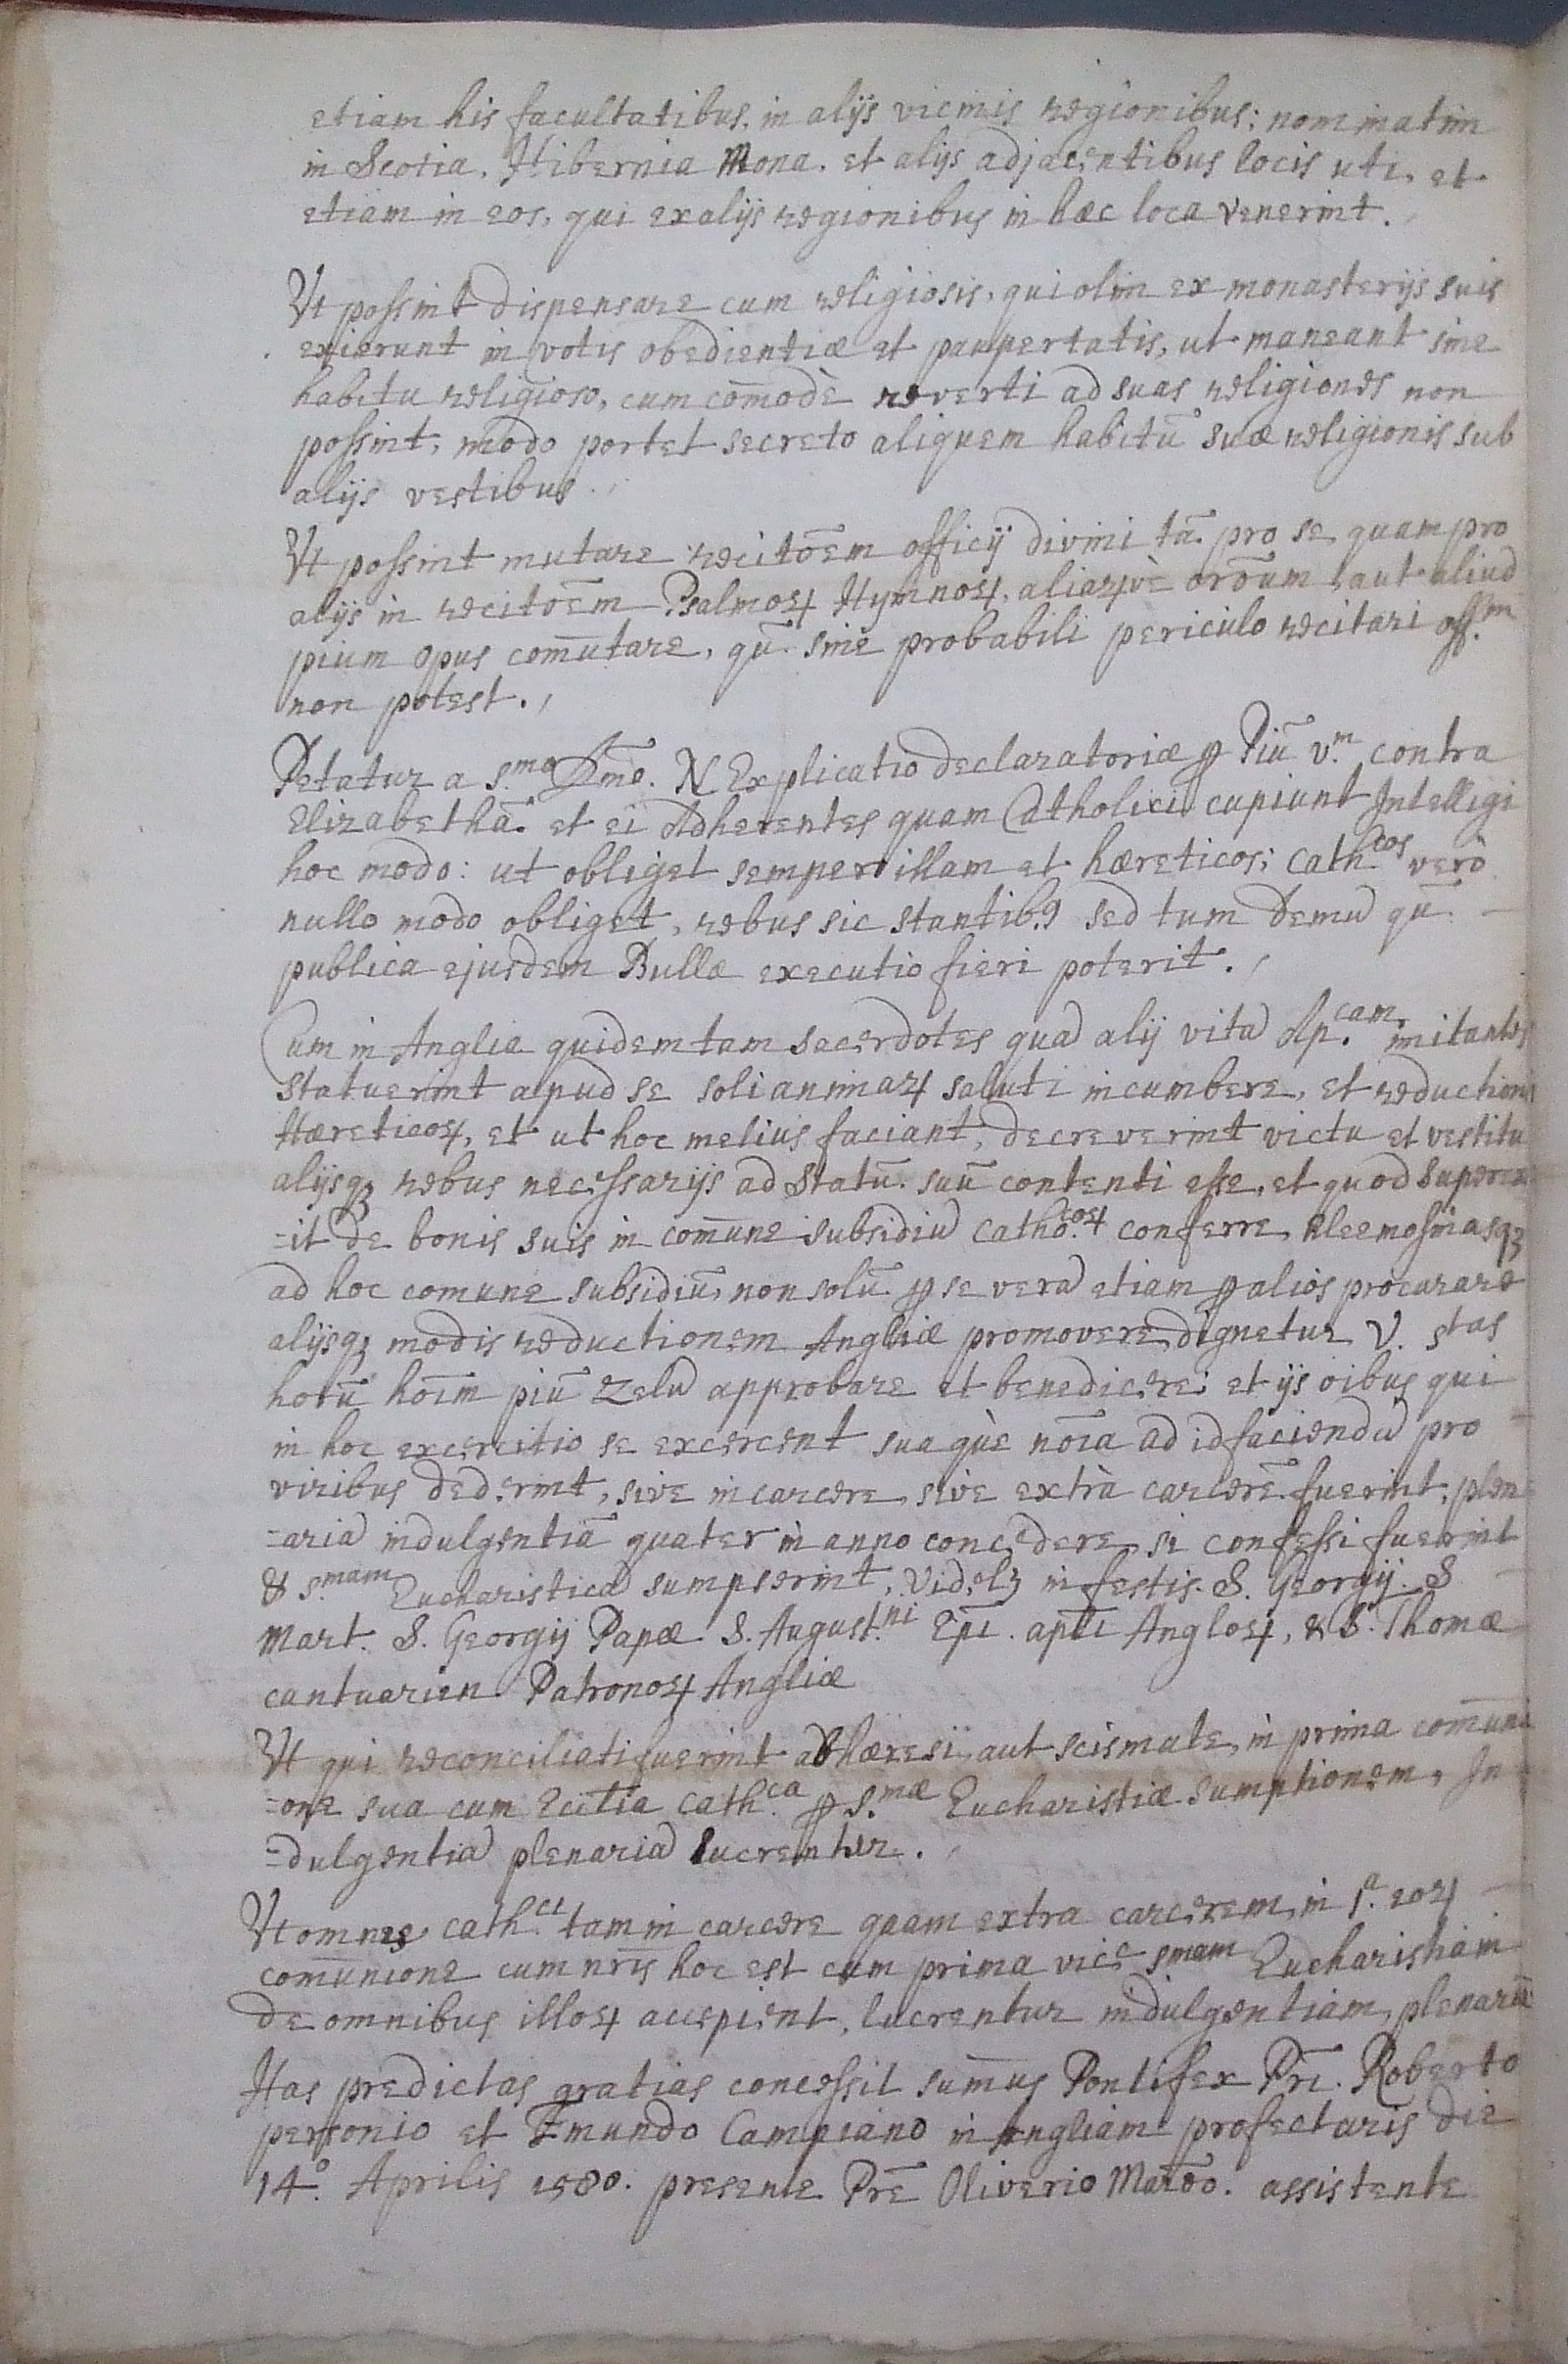 etiam his facultatibus, in alijs vicinis regionibus; nominatim
in Scotia, Hibernia Mona. et alijs adjacentibus locis uti, et
etiam in eos, qui ex alijs regionibus in hæc loca venerint.
Vt possint dispensare cum religiosis, qui olim ex monasterijs suis
exierunt in votis obedientiæ et paupertatis, ut maneant sine
habitu religioso, cum com̄odè reverti ad suas religiones non
possint, modo portet secreto aliquem habitū suæ religionis sub
alijs vestibus.
Vt possint mutare recitōem officij divini tā pro se quam pro
alijs in recitōem Psalmoꝝ Hymnoꝝ, aliaꝝvè orōum, aut aliud
pium opus com̄utare, qū sine probabili periculo recitari off.m
non potest.
Petatur a S.mo Dn̄o. N Explicatio declaratoriæ ꝑ Piū V.m contra
Elizabethā et ei Adherentes quam Catholici cupiunt Intelligi
hoc modo: ut obliget semper illam et hæreticos; Cath.cos verò
nullo modo obliget, rebus sic stantibꝰ sed tum demū qū
publica ejusdem Bullæ executio fieri poterit.
Cum in Anglia quidem tam sacerdotes quā alij vitā Ap.cam imitantes
statuerint apud se soli animaꝝ saluti incumbere, et reductioni
Hæreticoꝝ, et ut hoc melius faciant, decreverint victu et vestitu
alijsqꝫ rebus necessarijs ad statū suū contenti esse, et quod superex
=it de bonis suis in com̄une subsidiū Catho.coꝝ conferre, eleemosinasqꝫ
ad hoc comune subsidiū, non solū ꝑ se verū etiam ꝑ alios procurare
alijsqꝫ modis reductionem Angliæ promovere, dignetur V. Stas
horū hoīm piū zelū approbare et benedicere; et ijs oībus qui
in hoc excercitio se excercent suaquè nōīa ad id faciendū pro
viribus dederint, sive in carcere, sive extrà carcerē fuerint, plen
=ariā indulgentiā quater in anno concedere, si confessi fuerint
& S.mam Eucharisticā sumpserint, Videlꝫ in festis. S. Georgij. S
Mart. S. Georgij Papæ. S. August.ni Epī. aplī Angloꝝ, & S. Thomæ
cantuarien. Patronoꝝ Angliæ
Vt qui reconciliati fuerint ab hæresi, aut scismate, in prima com̄uni
=one sua cum Ecclīa Cath.ca ꝑ S.mæ Eucharistiæ sumptionem, In
=dulgentiā plenariā lucrentur.
Vt omnes Cath.ci tam in carcere quam extra carcerem, in 1.a eoꝝ
com̄unione cum nrīs hoc est cum prima vice Smam Eucharistiam
de omnibus illoꝝ accepient, lucrentur indulgentiam, plenariā
Has predictas gratias concessit sum̄us Pontifex Prī. Roberto
personio et Emundo Campiano in Angliam profecturis die
14.o Aprilis 1580. presente Prē Oliverio Manāo. assistente